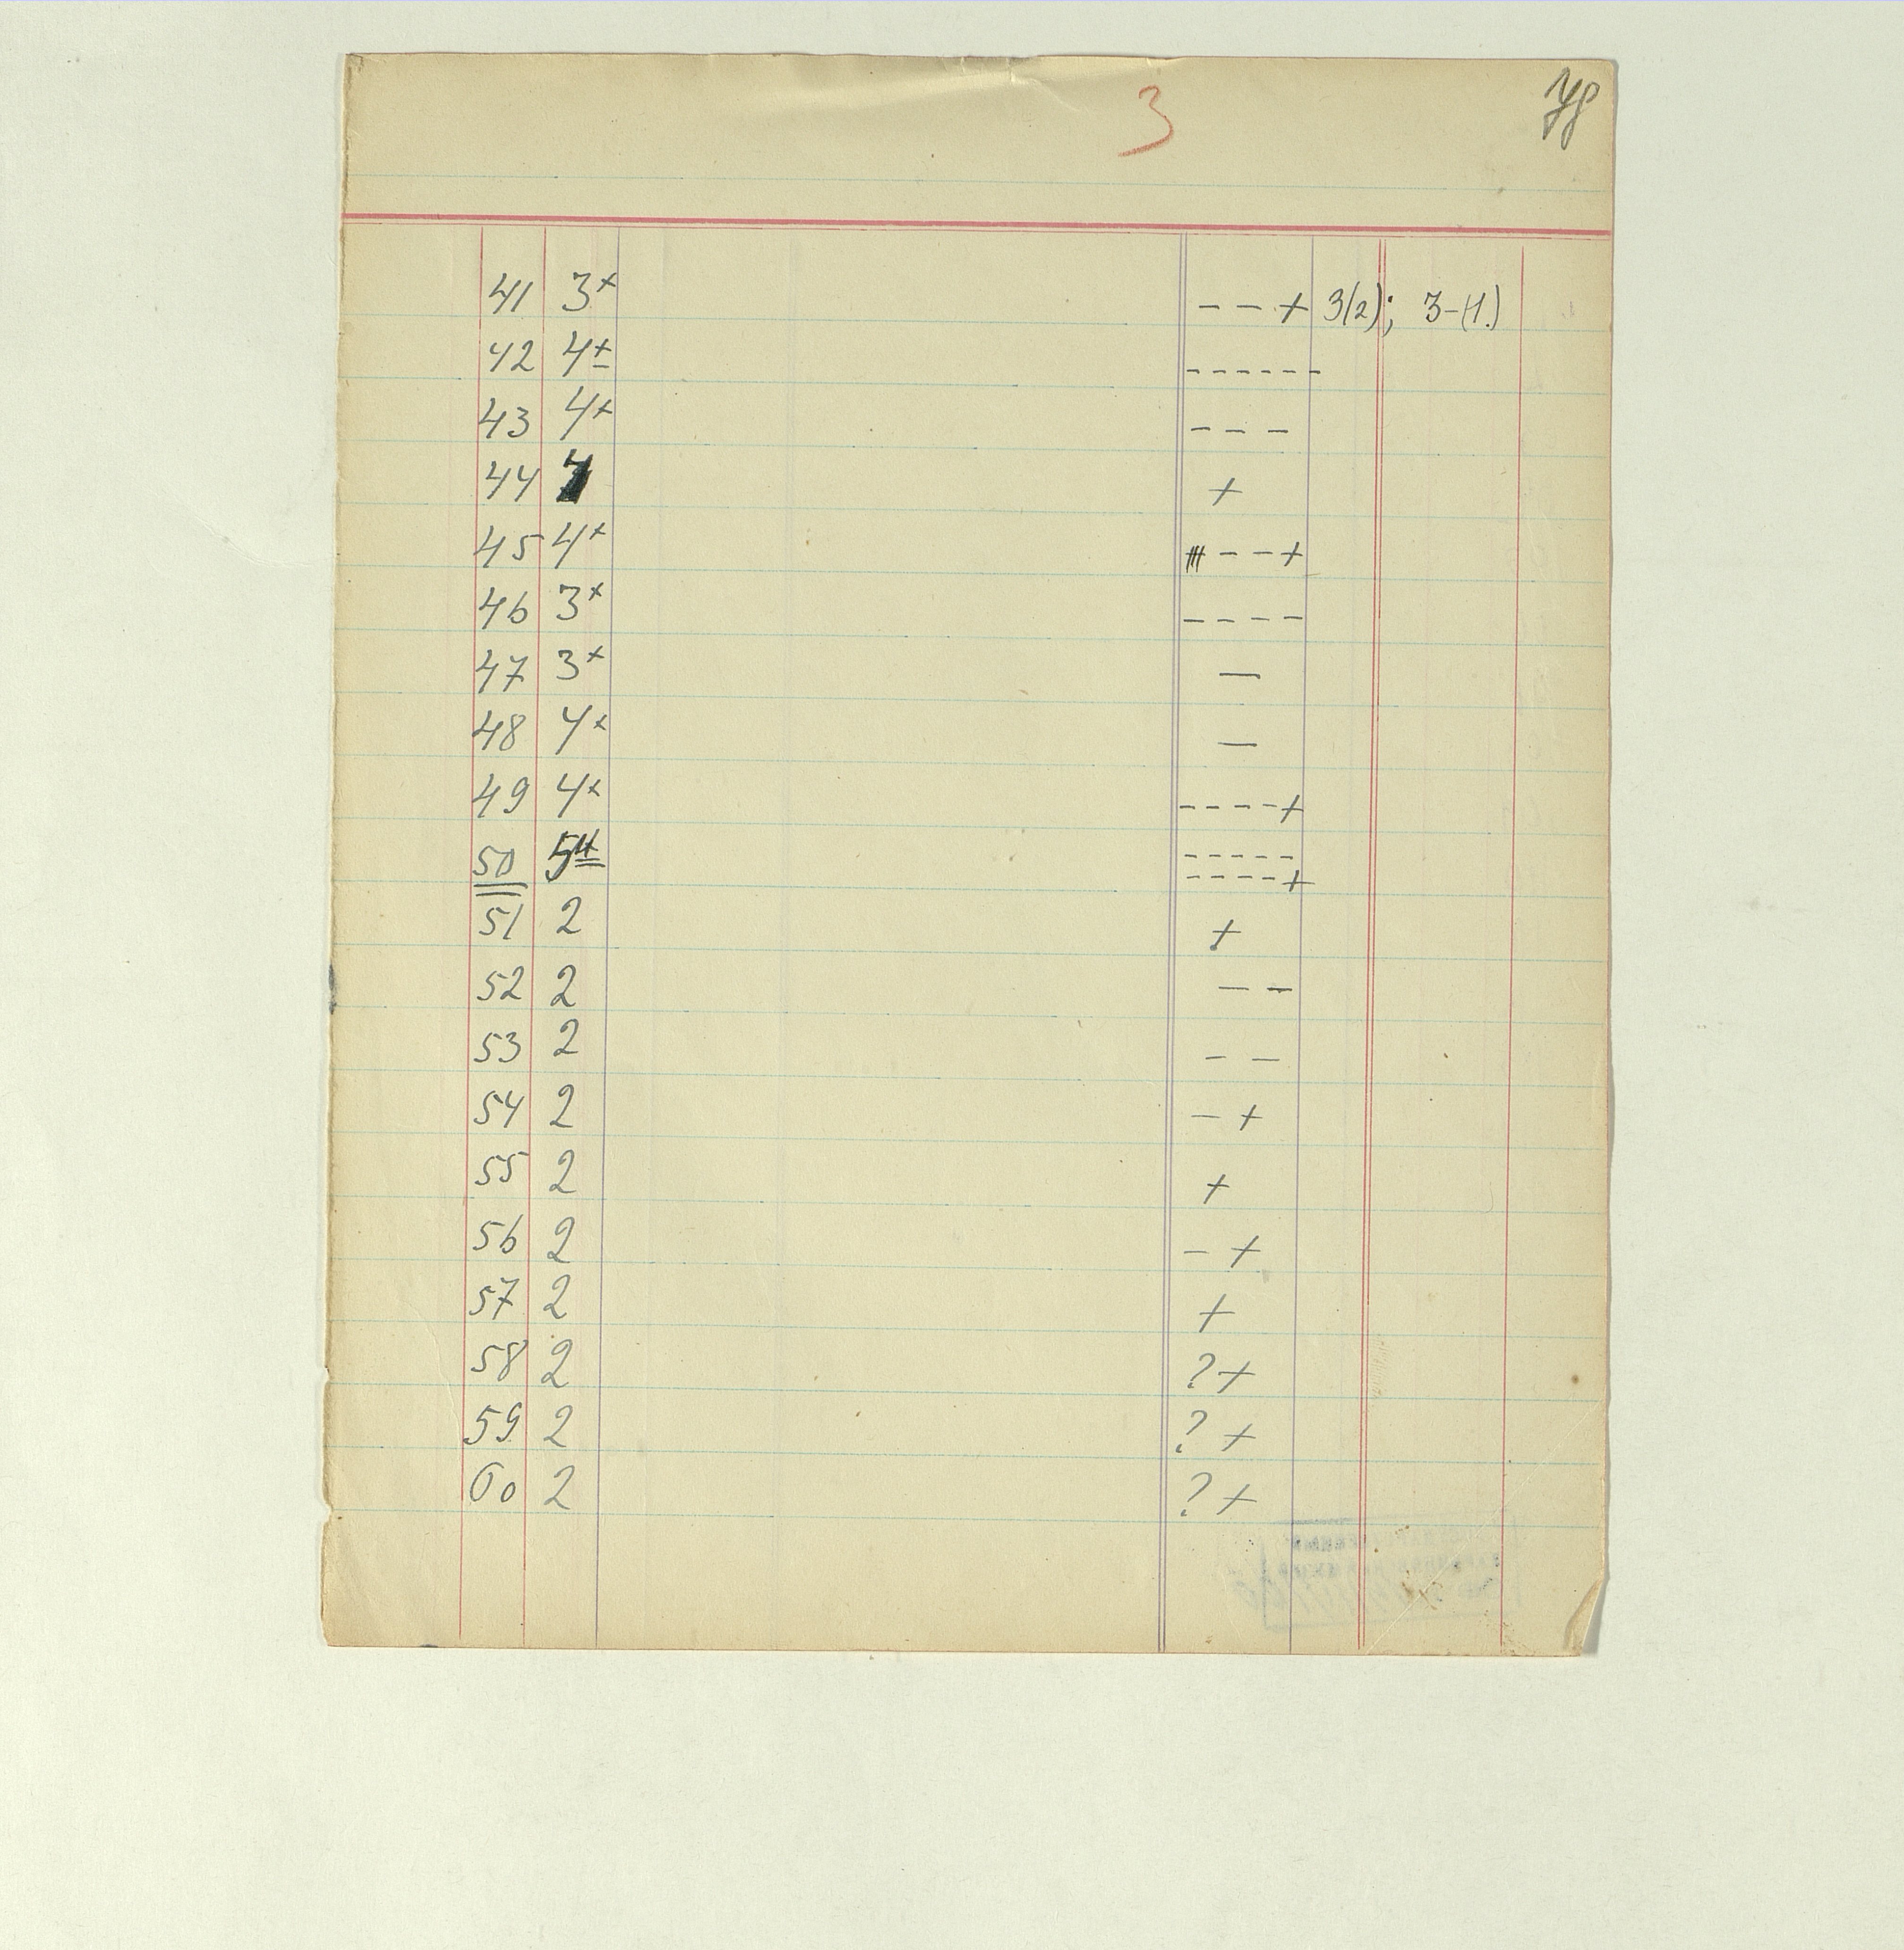 3
41 3+ – – + 3(2); 3-(1.)
42 4± – – – – – –
43 4+ – – –
44 + 
45 4+ – – +
46 3+ – – – –
47 3+ —
48 4+ —
49 4+ – – – – +
50 5 – – – – –
– – – – +
51 2 +
52 2 — –
53 2 – –
54 2 – +
55 2 +
56 2 – +
57 2 +
58 2 ? +
59 2 ? +
60 2 ? +